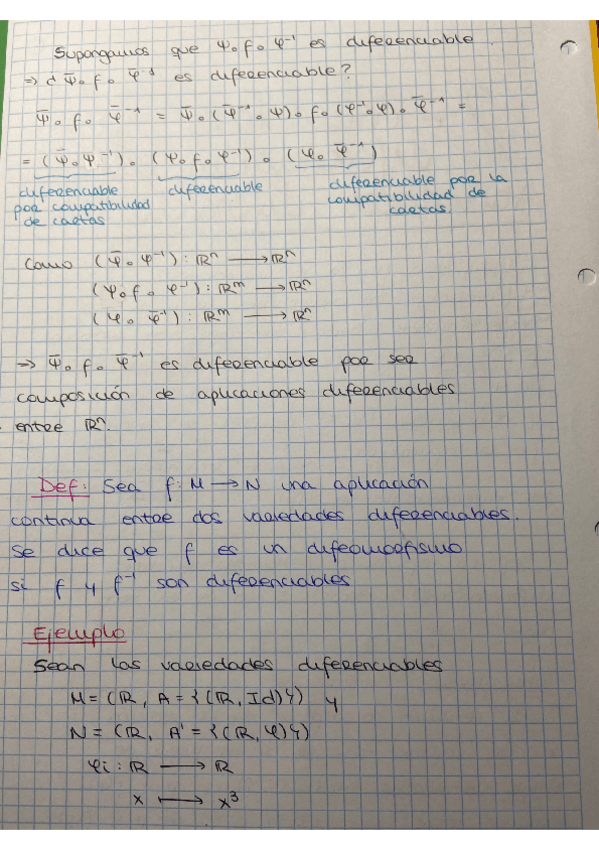 Supongamos que ψ∘f∘φ⁻¹ es diferenciable.
⇒ ¿ ψ̄∘f∘φ̄⁻¹ es diferenciable?
ψ̄∘f∘φ̄⁻¹ = ψ̄∘(ψ̄⁻¹∘ψ)∘f∘(φ⁻¹∘φ)∘φ̄⁻¹ =
= (ψ̄∘ψ⁻¹)∘(ψ∘f∘φ⁻¹)∘(φ∘φ̄⁻¹)
diferenciable por compatibilidad de cartas
diferenciable
diferenciable por la compatibilidad de cartas.
Como (ψ̄∘ψ⁻¹): ℝⁿ ⟶ ℝⁿ
(ψ∘f∘φ⁻¹): ℝᵐ ⟶ ℝⁿ
(φ∘φ̄⁻¹): ℝᵐ ⟶ ℝⁿ
⇒ ψ̄∘f∘φ̄⁻¹ es diferenciable por ser
composición de aplicaciones diferenciables
entre ℝⁿ.
Def: Sea f: M ⟶ N una aplicación
continua entre dos variedades diferenciables.
Se dice que f es un difeomorfismo
si f y f⁻¹ son diferenciables
Ejemplo
Sean las variedades diferenciables
M = (ℝ, A = {(ℝ, Id)}) y
N = (ℝ, A' = {(ℝ, φ)})
φi: ℝ ⟶ ℝ
x ⟼ x³